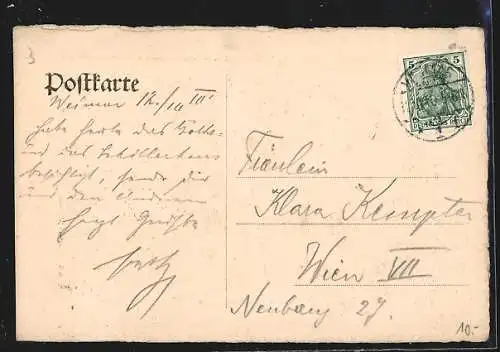 Postkarte
Weimar 12./III.
habe heute das Goethe-
und das Schillerhaus
besichtigt, sende dir
und den
herzl. Grüße
Fräulein
Klara Kempter
Wien VII
Neubaug 27.
5 5
10.-
3